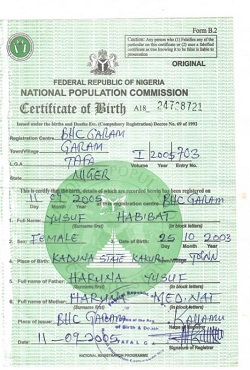 Form B.2
Certificate. Any person who (1) Falsifies any of the
particular on this certificate or (2) uses a falsified
certificate as true knowing it to be false is liable to
prosecution.
ORIGINAL
FEDERAL REPUBLIC OF NIGERIA
NATIONAL POPULATION COMMISSION
Certificate of Birth A18 24728721
Issued under the births and Deaths Etc. (Compulsory Registration) Decree No. 69 of 1992
Registration Centre BHC GARAM
Town/Village GARAM
L.G.A TAFA I 2005 703
State NIGER Volume Year Entry No.
This is certify that the birth, details of which are recorded herein has been registered on
11 09 2005 at BHC GARAM
Day Month Year registration centre
1. Full Name: YUSUF HABIBAT
(Surname first) (in block letters)
2. Sex: FEMALE 3. Date of Birth: 25 10 2003
Day Month Year
4. Place of Birth: KADUNA STATE KAKURI TOWN
5. Full name of Father: HARUNA YUSUF
(Surname first) (in block letters)
6. Full name of Mother: HARUNA
(in block letters)
Place of Issue: BHC GARAM
Date: 11-09-2005
Day Month Year Signature of Registrar
NATIONAL REGISTRATION PROGRAMME